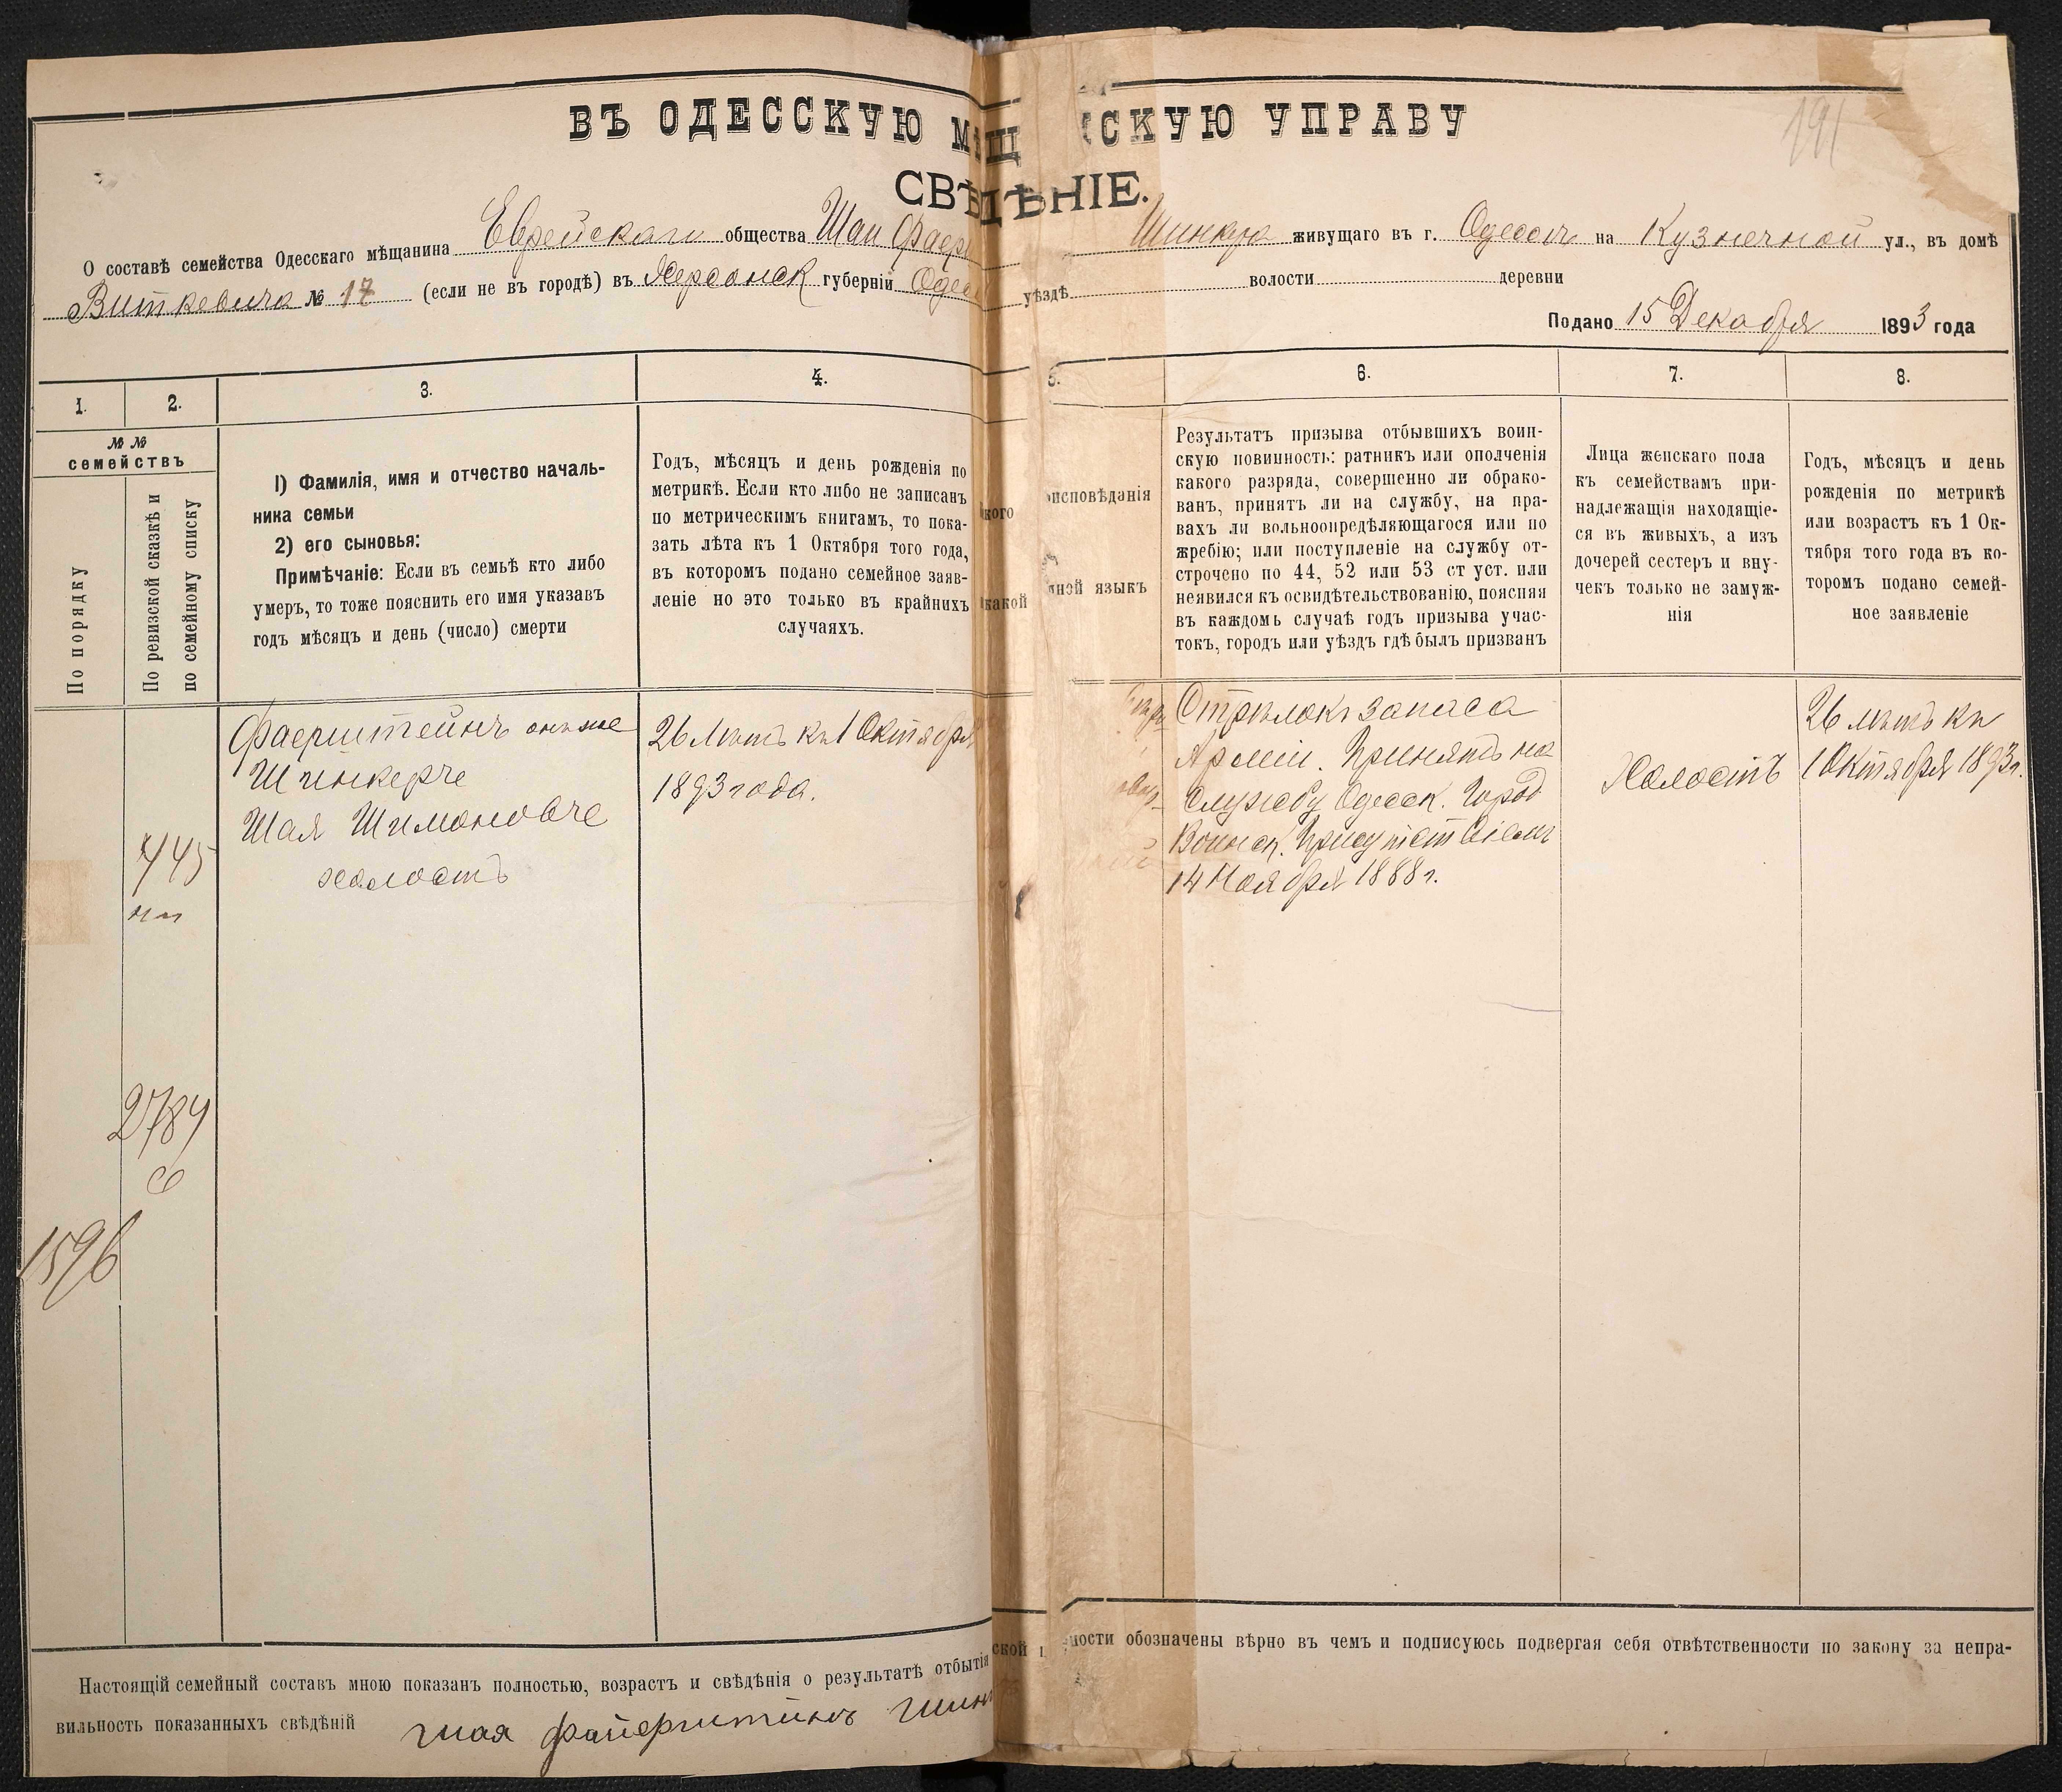 191
ВЪ ОДЕССКУЮ МѢЩ СКУЮ УПРАВУ
СВѢДѢНІЕ.
О составѣ семейства Одесскаго мѣщанина Еврейскаго общества Шаи Фаер Шинкер живущаго въ г. Одессѣ на Кузнечной ул., въ домѣ
Виткевича № 17 (если не въ городѣ) въ Херсонск губерніи Одес уѣздѣ волости деревни
Подано 15 Декабря 1893 года
1. 2. 3. 4. 5. 6. 7. 8.
№ №
семействъ
По порядку
По ревизской сказкѣ и
по семейному списку
1) Фамилія, имя и отчество началь-
ника семьи
2) его сыновья:
Примѣчаніе: Если въ семьѣ кто либо
умеръ, то тоже пояснить его имя указавъ
годъ мѣсяцъ и день (число) смерти
Годъ, мѣсяцъ и день рожденія по
метрикѣ. Если кто либо не записанъ
по метрическимъ книгамъ, то пока-
зать лѣта къ 1 Октября того года,
въ которомъ подано семейное заяв-
леніе но это только въ крайнихъ
случаяхъ.
кого исповѣданія
какой дной языкъ
Результатъ призыва отбывшихъ воин-
скую повинность: ратникъ или ополченія
какого разряда, совершенно ли обрако-
ванъ, принятъ ли на службу, на пра-
вахъ ли вольноопредѣляющагося или по
жребію; или поступленіе на службу от-
строчено по 44, 52 или 53 ст уст. или
неявился къ освидѣтельствованію, поясняя
въ каждомъ случаѣ годъ призыва учас-
токъ, городъ или уѣздъ гдѣ былъ призванъ
Лица женскаго пола
къ семействамъ при-
надлежащія находящіе-
ся въ живыхъ, а изъ
дочерей сестеръ и вну-
чекъ только не замуж-
нія
Годъ, мѣсяцъ и день
рожденія по метрикѣ
или возрастъ къ 1 Ок-
тября того года въ ко-
торомъ подано семей-
ное заявленіе
445
2784
1596
Фаерштейнъ онъ же
Шинкерче
Шая Шимоновче
холостъ
26 лѣтъ къ 1 Октября
1893 года.
Стрѣлокъ запаса
Арміи. Принятъ на
службу Одесск. Город
Воинск. Присутствіемъ
14 Ноября 1888 г.
Холостъ
26 лѣтъ къ
1 Октября 1893 г.
Настоящій семейный составъ мною показанъ полностью, возрастъ и свѣдѣнія о результатѣ отбытія ской ности обозначены вѣрно въ чемъ и подписуюсь подвергая себя отвѣтственности по закону за непра-
вильность показанныхъ свѣдѣній шая файерштинъ шин